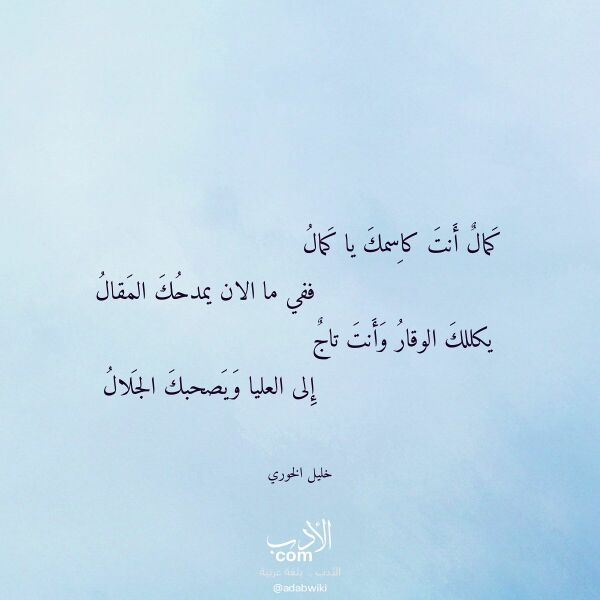 كَمالٌ أَنتَ كاِسمكَ يا كَمالُ
ففي ما الان يمدحُكَ المَقالُ
يكللكَ الوقارُ وَأَنتَ تاجٌ
إِلى العليا وَيَصحبكَ الجَلالُ
خليل الخوري
الأدب
com
الأدب .. بلغة عربية
@adabwiki